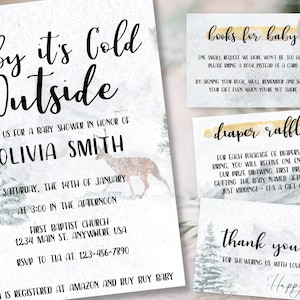 by it's Cold
Outside
US FOR A BABY SHOWER IN HONOR OF
OLIVIA SMITH
SATURDAY, THE 14TH OF JANUARY
AT 3:00 IN THE AFTERNOON
FIRST BAPTIST CHURCH
1234 MAIN ST. ANYWHERE USA
RSVP TO TIA AT 123-456-7890
IS REGISTERED AT AMAZON AND BUY BUY BABY
books for baby
ONE SMALL REQUEST WE HOPE WON'T BE TOO HARD
PLEASE BRING A BOOK INSTEAD OF A CARD
BY SIGNING YOUR BOOK, WE'LL REMEMBER AND S
YOUR GIFT EVEN WHEN YOU'RE NOT THERE
diaper raffl
FOR EACH PACKAGE OF DIAPERS
BRING, YOU WILL RECEIVE ONE EN
OUR PRIZE DRAWING. FIRST PRIZE
GETTING THE BABY NAMED AFTE
JUST KIDDING- IT'S A GIFT
thank you
FOR SHOWERING US WITH LOVE
Happy